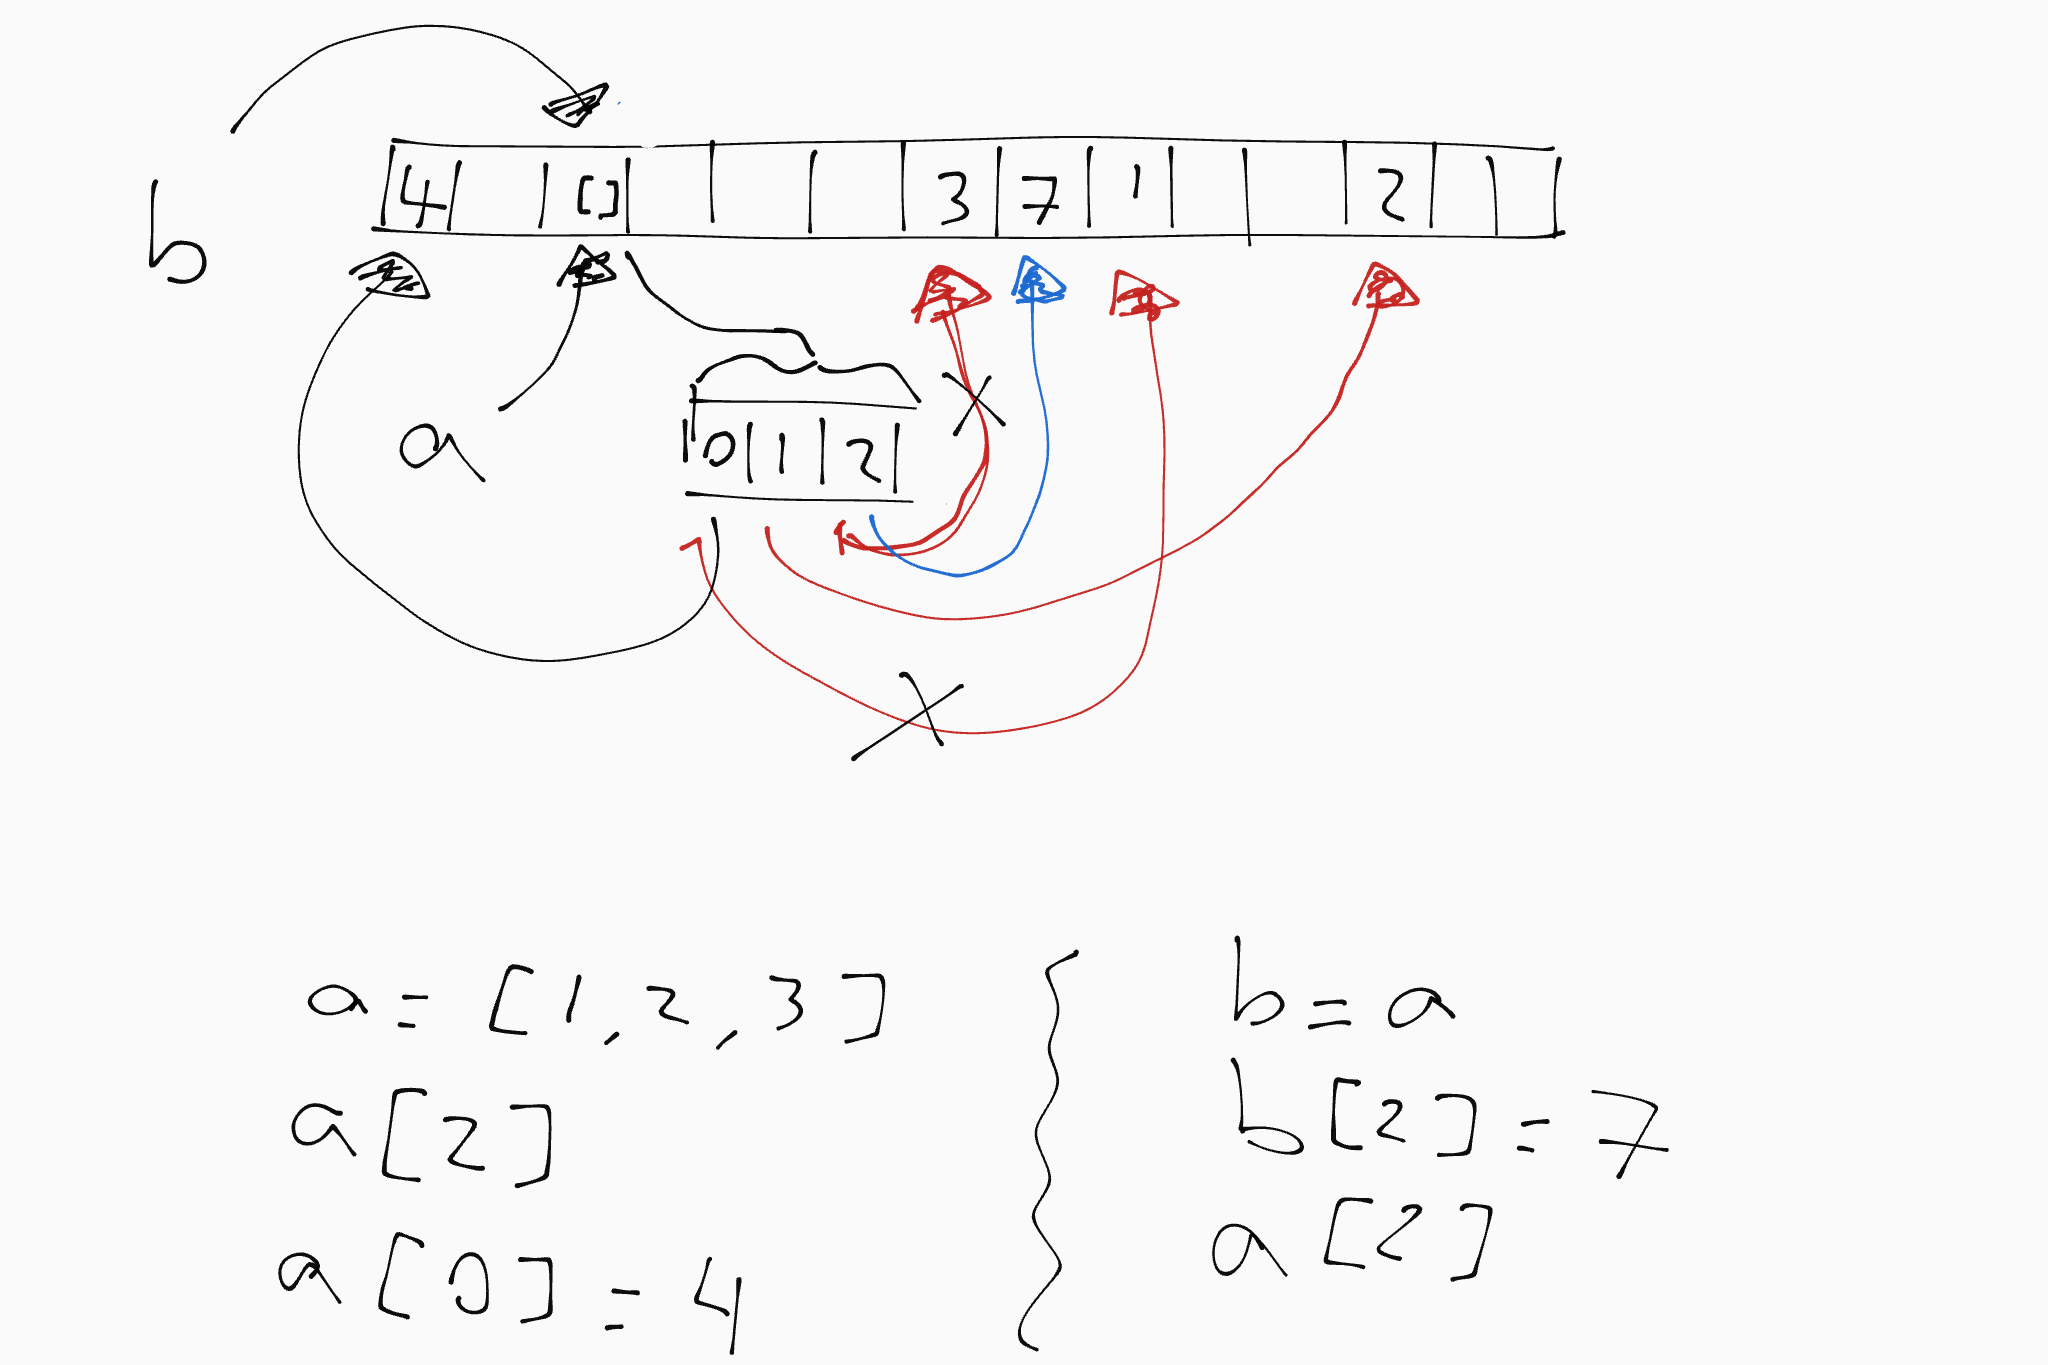 4 [] 3 7 1 2
b
a
0 1 2
a = [1, 2, 3]
a[2]
a[0] = 4
b = a
b[2] = 7
a[2]